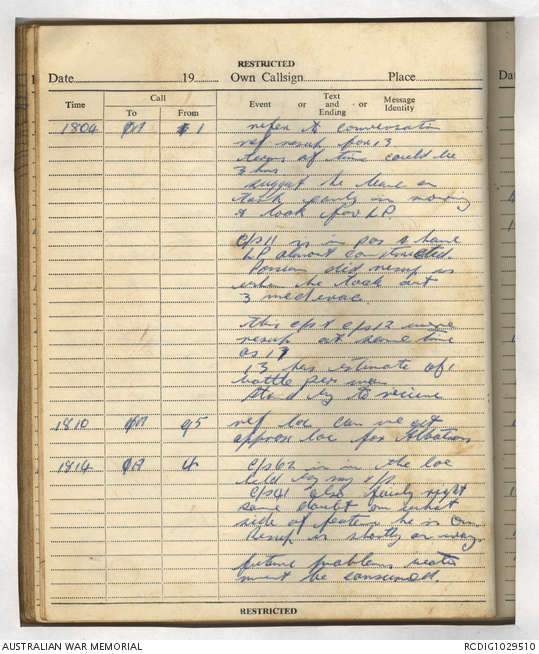 RESTRICTED
Date 19 Own Callsign Place Da
Time Call Event or Text and Ending or Message Identity
To From
1804 ØA 1 refer to conversation
ref resup for 13.
at time could be
3 hrs
suggest he leave on
party in moving
& look for LP.
C/S 11 is in pos & have
LP almost constructed.
Possum did resup us
when he took out
3 medevac.
this C/S & C/S 12 were
resup at same time
as 13
13 has estimate of 1
bottle per man
Stand by to receive
1810 ØA 95 ref loc can we get
approx loc for Albatross
1814 ØA 4 C/S 62 is in the loc
held by my C/S
C/S 41 also fairly right
some doubt on what
side of feature he is on.
Resup is shortly on way
future problems water
must be conserved.
RESTRICTED
AUSTRALIAN WAR MEMORIAL RCDIG1029510